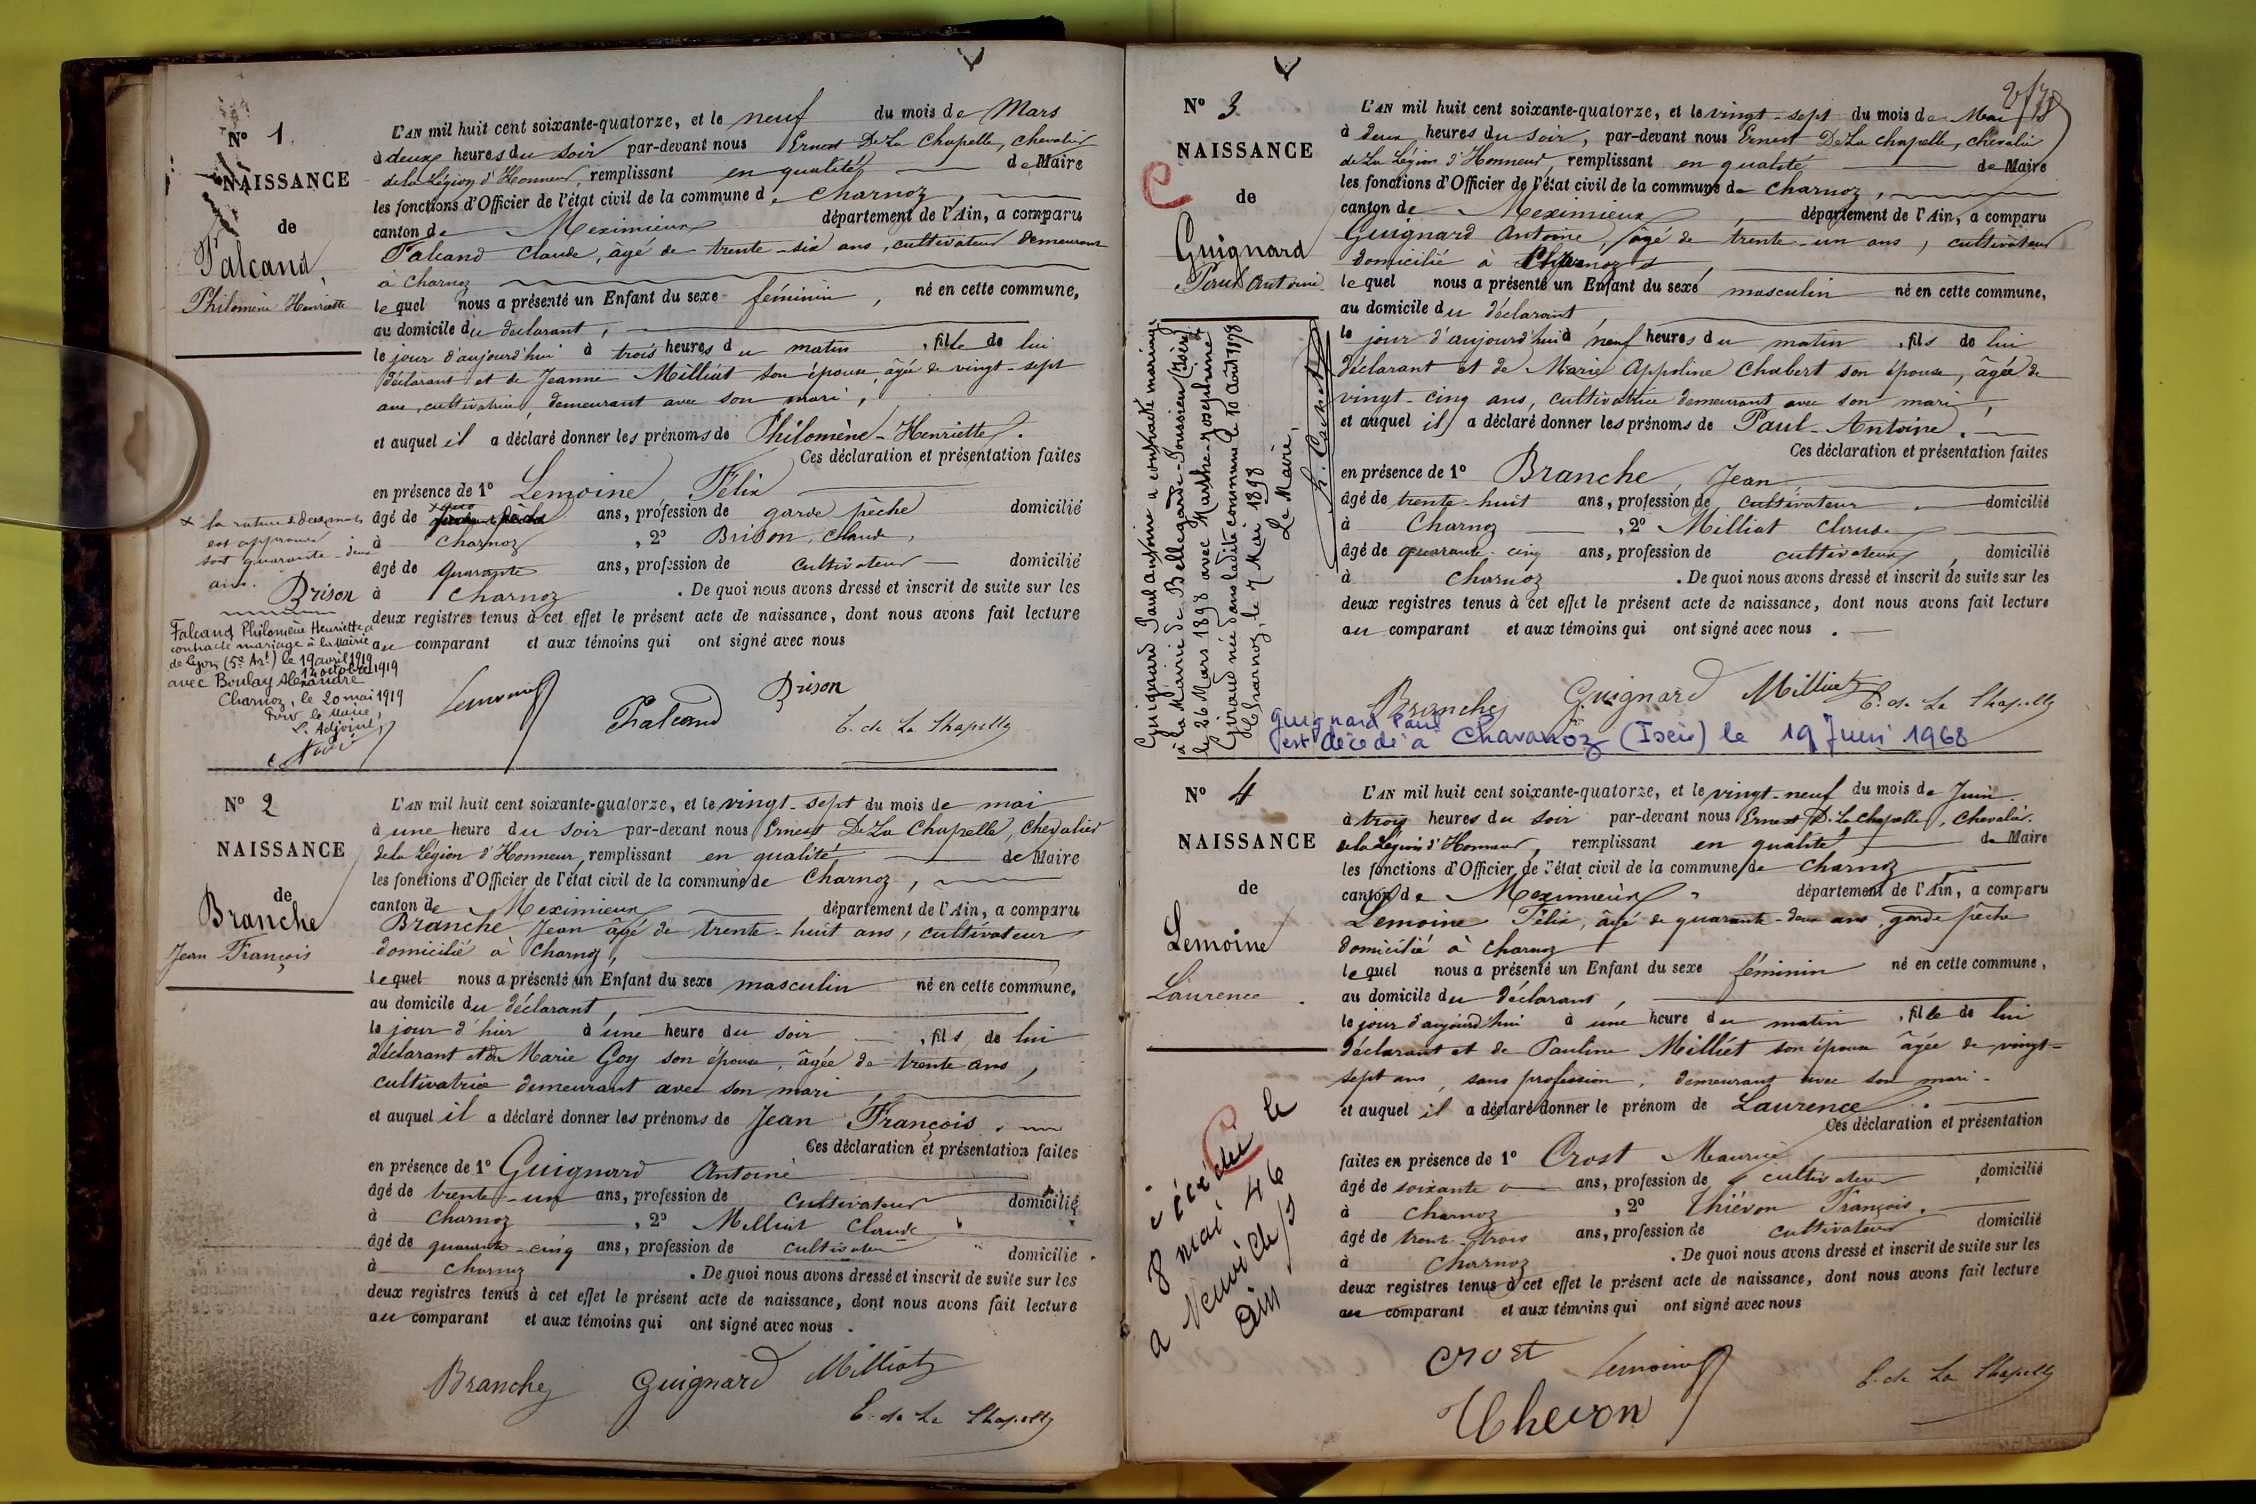 N° 1
NAISSANCE
de
Falcand,
Philomène Henriette
L'AN mil huit cent soixante-quatorze, et le neuf du mois de Mars
à deux heures du soir par-devant nous Ernest De La Chapelle, chevalier
de la Légion d'Honneur, remplissant en qualité de Maire
les fonctions d'Officier de l'état civil de la commune de Charnoz,
canton de Meximieux département de l'Ain, a comparu
Falcand Claude, âgé de trente-six ans, cultivateur demeurant
à Charnoz
lequel nous a présenté un Enfant du sexe féminin, né en cette commune,
au domicile du déclarant,
le jour d'aujourd'hui à trois heures du matin, fille de lui
déclarant et de Jeanne Milliat son épouse, âgée de vingt-sept
ans, cultivatrice, demeurant avec son mari,
et auquel il a déclaré donner les prénoms de Philomène-Henriette.
Ces déclaration et présentation faites
en présence de 1° Lemoine Félix
âgé de ans, profession de garde pêche domicilié
à Charnoz, 2° Brison, Claude,
âgé de quarante ans, profession de cultivateur domicilié
à Charnoz. De quoi nous avons dressé et inscrit de suite sur les
deux registres tenus à cet effet le présent acte de naissance, dont nous avons fait lecture
au comparant et aux témoins qui ont signé avec nous
x la rature de deux mots
est approuvé
soit quarante-deux
ans.
Brison
Falcand Philomène Henriette a
contracté mariage à la Mairie
de Lyon (5e Art) le 19 avril 1919
14 octobre 1919
avec Boulay Alexandre
Charnoz, le 20 mai 1919
Pour le Maire,
L'Adjoint,
Lemoine Falcand Brison
E. de La Chapelle
N° 2
NAISSANCE
de
Branche
Jean François
L'AN mil huit cent soixante-quatorze, et le vingt-sept du mois de mai
à une heure du soir par-devant nous Ernest De La Chapelle, Chevalier
de la Légion d'Honneur, remplissant en qualité de Maire
les fonctions d'Officier de l'état civil de la commune de Charnoz,
canton de Meximieux département de l'Ain, a comparu
Branche Jean âgé de trente-huit ans, cultivateur
domicilié à Charnoz,
lequel nous a présenté un Enfant du sexe masculin né en cette commune,
au domicile du déclarant,
le jour d'hier à une heure du soir, fils de lui
déclarant et de Marie Goy son épouse, âgée de trente ans,
cultivatrice demeurant avec son mari,
et auquel il a déclaré donner les prénoms de Jean François.
Ces déclaration et présentation faites
en présence de 1° Guignard Antoine
âgé de trente-un ans, profession de cultivateur domicilié
à Charnoz, 2° Milliat Claude
âgé de quarante-cinq ans, profession de cultivateur domicilié
à Charnoz. De quoi nous avons dressé et inscrit de suite sur les
deux registres tenus à cet effet le présent acte de naissance, dont nous avons fait lecture
au comparant et aux témoins qui ont signé avec nous.
Branche Guignard Milliat
E. de La Chapelle
N° 3
NAISSANCE
de
Guignard
Paul Antoine
L'AN mil huit cent soixante-quatorze, et le vingt-sept du mois de Mai
à deux heures du soir, par-devant nous Ernest De La Chapelle, chevalier
de La Légion d'Honneur, remplissant en qualité de Maire
les fonctions d'Officier de l'état civil de la commune de Charnoz,
canton de Meximieux, département de l'Ain, a comparu
Guignard Antoine, âgé de trente-un ans, cultivateur
domicilié à Charnoz,
lequel nous a présenté un Enfant du sexe masculin né en cette commune,
au domicile du déclarant
le jour d'aujourd'hui à neuf heures du matin, fils de lui
déclarant et de Marie Appoline Chabert son épouse, âgée de
vingt-cinq ans, cultivatrice demeurant avec son mari,
et auquel il a déclaré donner les prénoms de Paul-Antoine.
Ces déclaration et présentation faites
en présence de 1° Branche, Jean
âgé de trente-huit ans, profession de cultivateur domicilié
à Charnoz, 2° Milliat Claude
âgé de quarante-cinq ans, profession de cultivateur, domicilié
à Charnoz. De quoi nous avons dressé et inscrit de suite sur les
deux registres tenus à cet effet le présent acte de naissance, dont nous avons fait lecture
au comparant et aux témoins qui ont signé avec nous.
Guignard Paul Antoine a contracté mariage
à la Mairie de Bellegarde-Poussieu (Isère)
le 26 Mars 1898 avec Marthe-Josephine
Giraud née dans ladite commune le 10 Août 1878
Charnoz, le 7 Mai 1898
Le Maire,
Branche Guignard Milliat E. de La Chapelle
Guignard Paul
est décédé à Chavanoz (Isère) le 19 Juin 1968
N° 4
NAISSANCE
de
Lemoine
Laurence
L'AN mil huit cent soixante-quatorze, et le vingt-neuf du mois de Juin
à trois heures du soir par-devant nous Ernest De La Chapelle, Chevalier
de la Légion d'Honneur, remplissant en qualité de Maire
les fonctions d'Officier de l'état civil de la commune de Charnoz
canton de Meximieux département de l'Ain, a comparu
Lemoine Félix, âgé de quarante-deux ans, garde pêche
domicilié à Charnoz
lequel nous a présenté un Enfant du sexe féminin né en cette commune,
au domicile du déclarant,
le jour d'aujourd'hui à une heure du matin, fille de lui
déclarant et de Pauline Milliét son épouse âgée de vingt-
sept ans, sans profession, demeurant avec son mari
et auquel il a déclaré donner le prénom de Laurence.
Ces déclaration et présentation
faites en présence de 1° Crost Maurice
âgé de soixante ans, profession de cultivateur, domicilié
à Charnoz, 2° Thiévon François,
âgé de trente-trois ans, profession de cultivateur domicilié
à Charnoz. De quoi nous avons dressé et inscrit de suite sur les
deux registres tenus à cet effet le présent acte de naissance, dont nous avons fait lecture
au comparant et aux témoins qui ont signé avec nous
décédée le
8 mai 46
a Neuville/s
Ain
Crost Lemoine E. de La Chapelle
Thevon